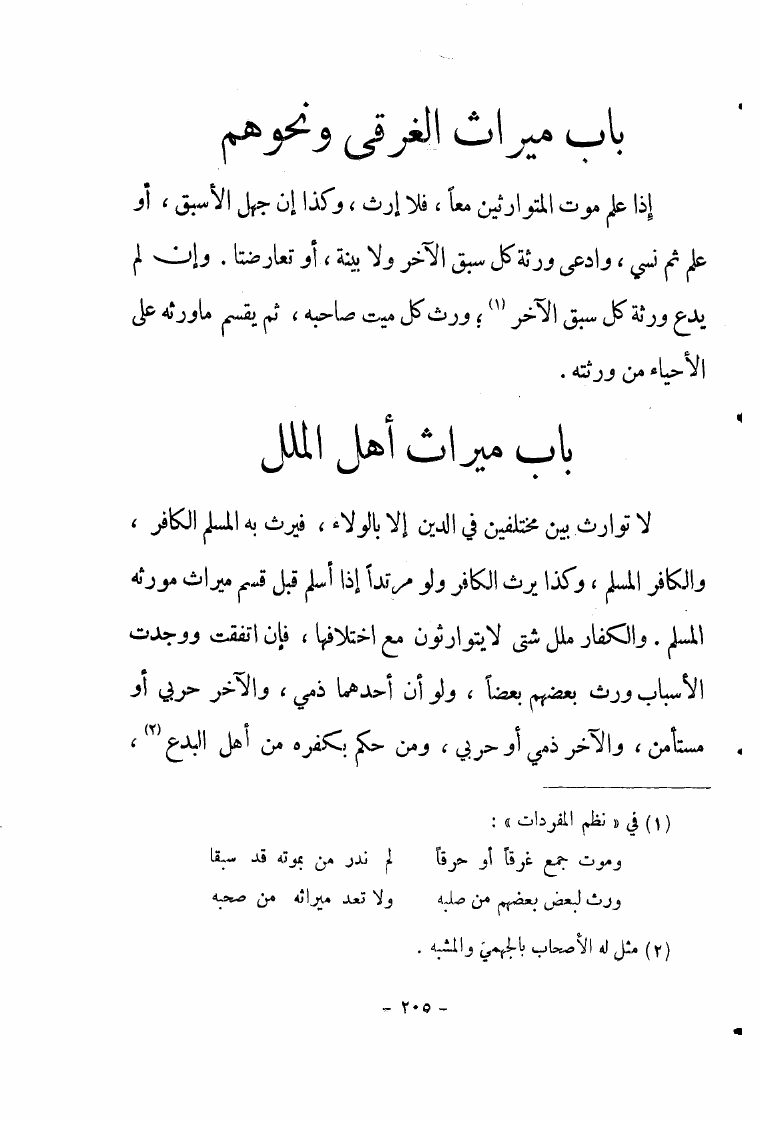 باب ميراث الغرقى ونحوهم
إذا علم موت المتوارثين معاً ، فلا إرث ، وكذا إن جهل الأسبق ، أو
علم ثم نسي ، وادعى ورثة كل سبق الآخر ولا بينة ، أو تعارضتا . وإن لم
يدع ورثة كل سبق الآخر (١) ؛ ورث كل ميت صاحبه ، ثم يقسم ماورثه على
الأحياء من ورثته .
باب ميراث أهل الملل
لا توارث بين مختلفين في الدين إلا بالولاء ، فيرث به المسلم الكافر ،
والكافر المسلم ، وكذا يرث الكافر ولو مرتداً إذا أسلم قبل قسم ميراث مورثه
المسلم . والكفار ملل شتى لايتوارثون مع اختلافها ، فإن اتفقت ووجدت
الأسباب ورث بعضهم بعضاً ، ولو أن أحدهما ذمي ، والآخر حربي أو
مستأمن ، والآخر ذمي أو حربي ، ومن حكم بكفره من أهل البدع (٢) ،
(١) في « نظم المفردات » :
وموت جمع غرقاً أو حرقاً لم ندر من بموته قد سبقا
ورث لبعض بعضهم من صلبه ولا تعد ميراثه من صحبه
(٢) مثل له الأصحاب بالجهمي والمشبه .
- ٢٠٥ -